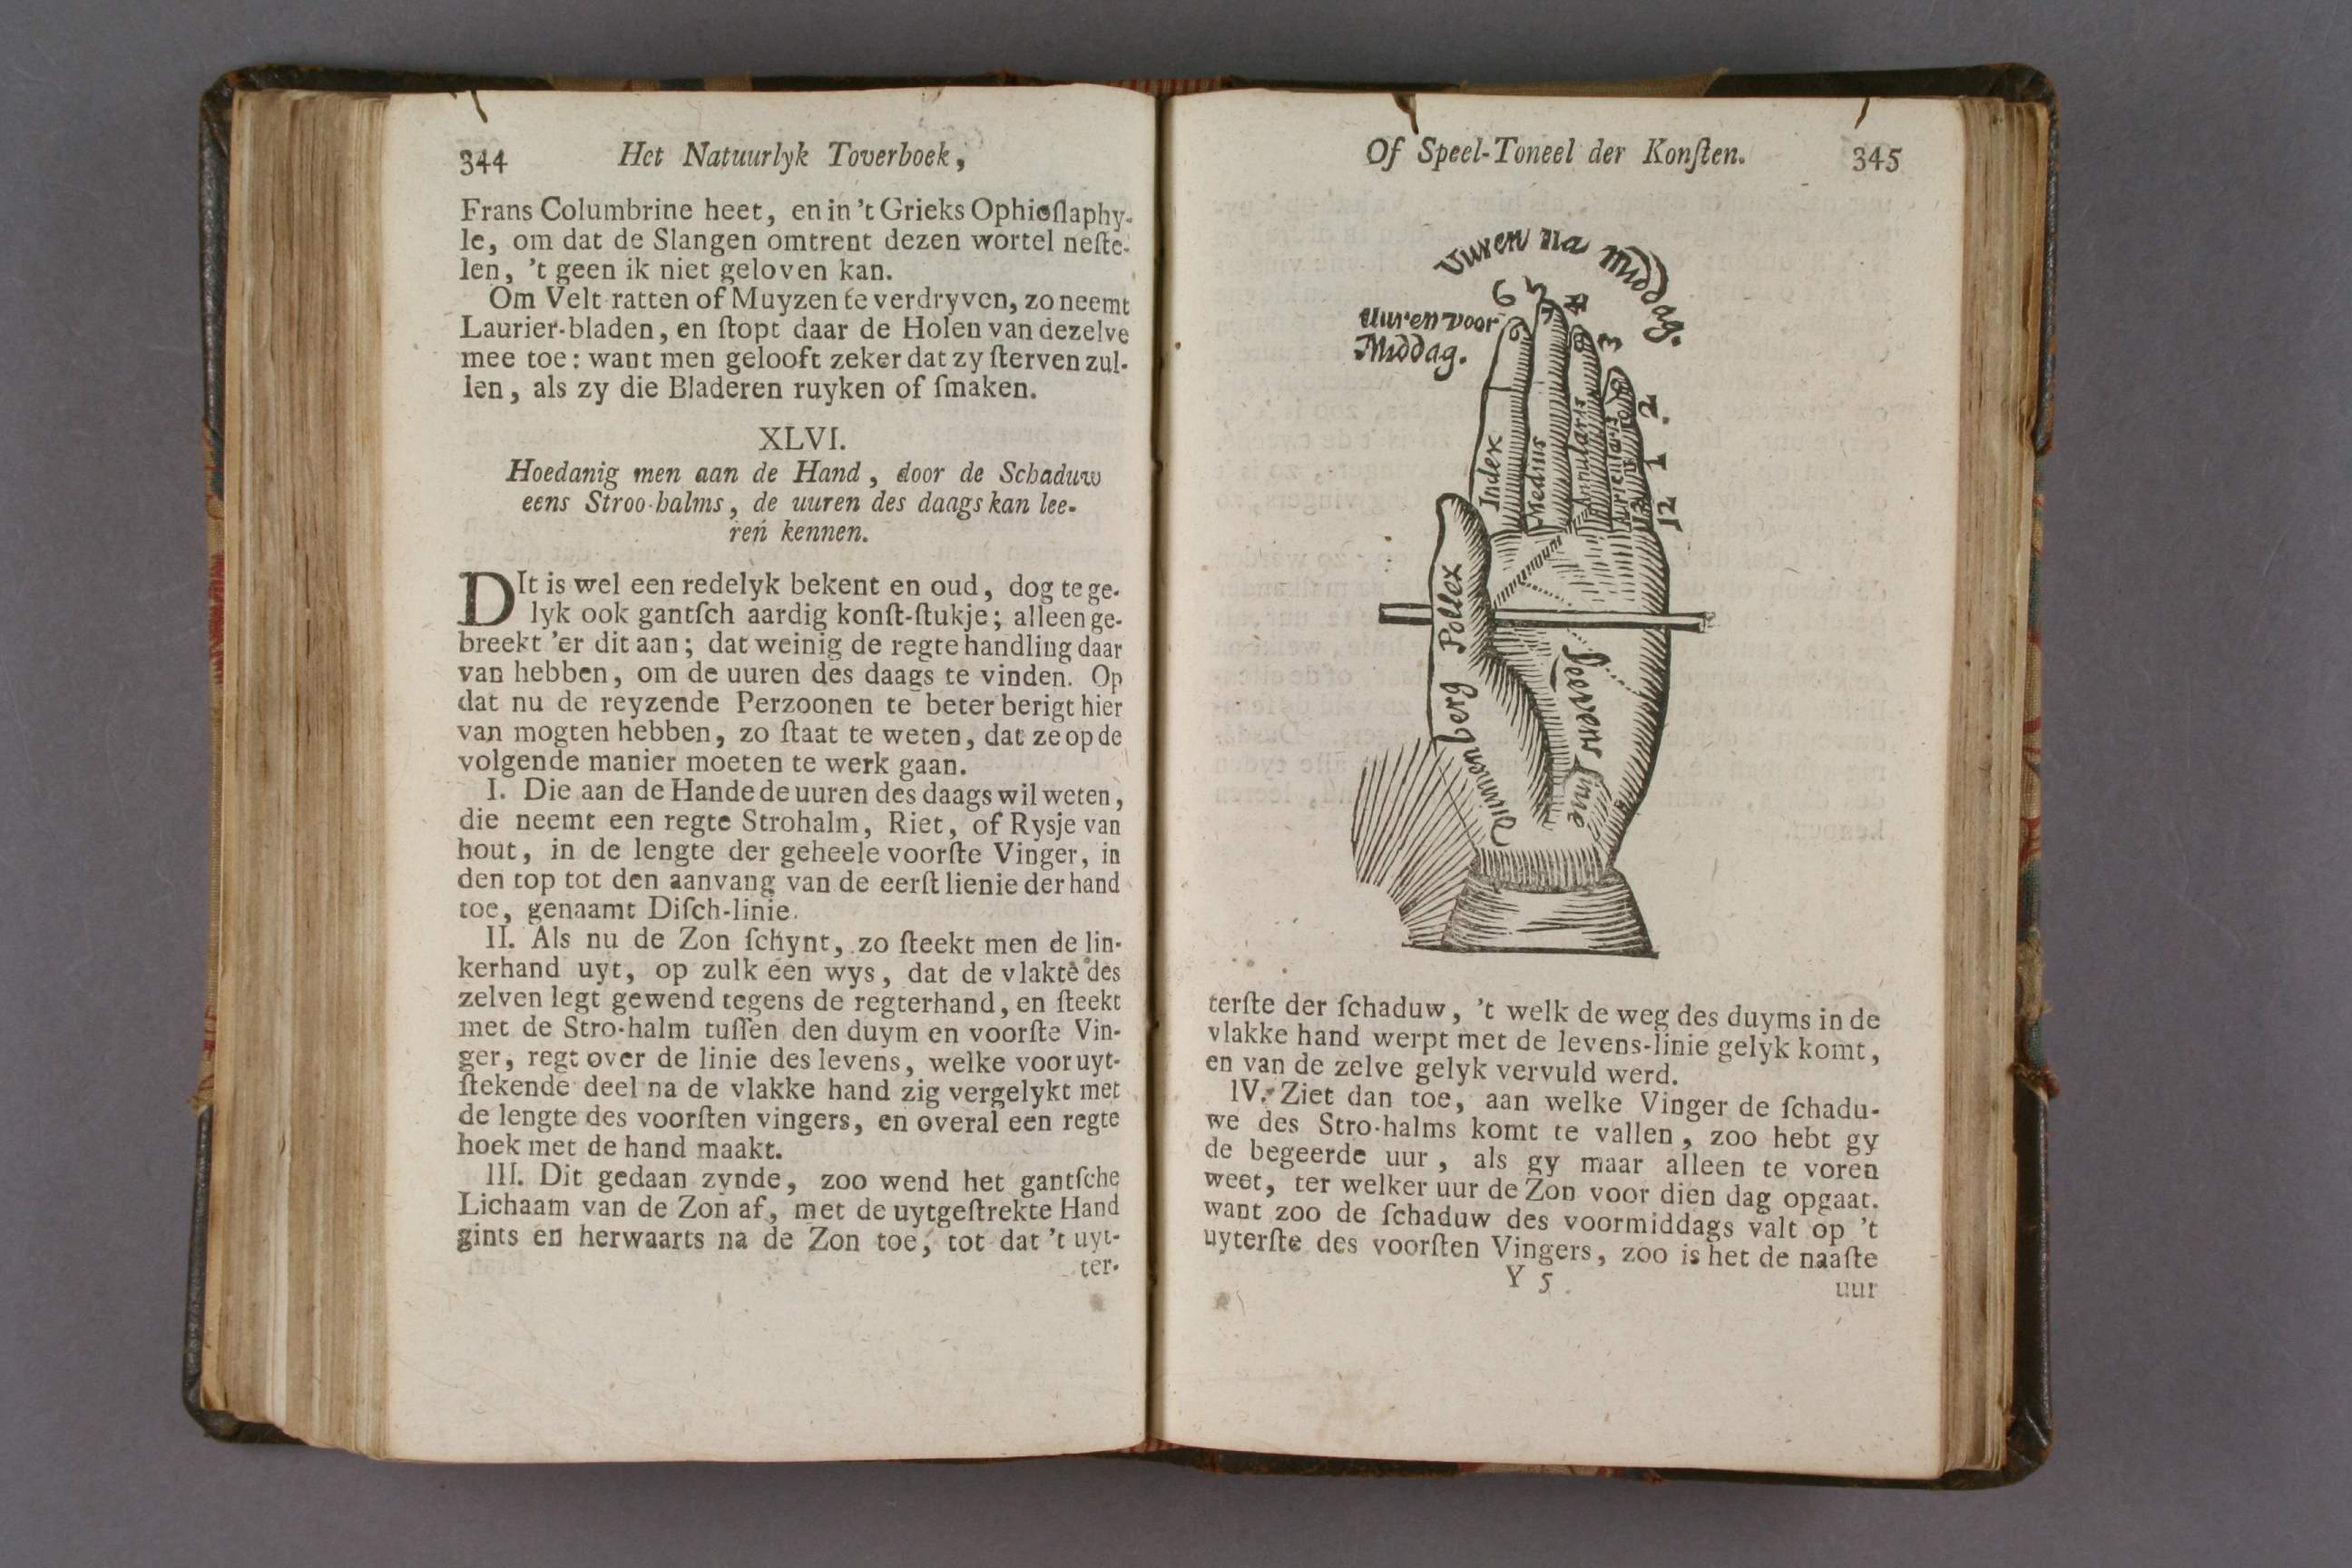 344 Het Natuurlyk Toverboek,
Frans Columbrine heet, en in 't Grieks Ophioſlaphy-
le, om dat de Slangen omtrent dezen wortel neſte-
len, 't geen ik niet geloven kan.
Om Velt ratten of Muyzen te verdryven, zo neemt
Laurier-bladen, en ſtopt daar de Holen van dezelve
mee toe: want men gelooft zeker dat zy ſterven zul-
len, als zy die Bladeren ruyken of ſmaken.
XLVI.
Hoedanig men aan de Hand, door de Schaduw
eens Stroo-halms, de uuren des daags kan lee-
ren kennen.
DIt is wel een redelyk bekent en oud, dog te ge-
lyk ook gantſch aardig konſt-ſtukje; alleen ge-
breekt 'er dit aan; dat weinig de regte handling daar
van hebben, om de uuren des daags te vinden. Op
dat nu de reyzende Perzoonen te beter berigt hier
van mogten hebben, zo ſtaat te weten, dat ze op de
volgende manier moeten te werk gaan.
I. Die aan de Hande de uuren des daags wil weten,
die neemt een regte Strohalm, Riet, of Rysje van
hout, in de lengte der geheele voorſte Vinger, in
den top tot den aanvang van de eerſt lienie der hand
toe, genaamt Diſch-linie.
II. Als nu de Zon ſchynt, zo ſteekt men de lin-
kerhand uyt, op zulk een wys, dat de vlakte des
zelven legt gewend tegens de regterhand, en ſteekt
met de Stro-halm tuſſen den duym en voorſte Vin-
ger, regt over de linie des levens, welke voor uyt-
ſtekende deel na de vlakke hand zig vergelykt met
de lengte des voorſten vingers, en overal een regte
hoek met de hand maakt.
III. Dit gedaan zynde, zoo wend het gantſche
Lichaam van de Zon af, met de uytgeſtrekte Hand
gints en herwaarts na de Zon toe, tot dat 't uyt-
ter-
Of Speel-Toneel der Konſten. 345
Uuren na Middag.
Uuren voor
Middag.
6 5 4 3 2 1 12
6 7 8 9
Index
Medius
Annularis
Auricularis
Pollex
Duimen berg
Leevens linie
terſte der ſchaduw, 't welk de weg des duyms in de
vlakke hand werpt met de levens-linie gelyk komt,
en van de zelve gelyk vervuld werd.
IV. Ziet dan toe, aan welke Vinger de ſchadu-
we des Stro-halms komt te vallen, zoo hebt gy
de begeerde uur, als gy maar alleen te voren
weet, ter welker uur de Zon voor dien dag opgaat.
want zoo de ſchaduw des voormiddags valt op 't
uyterſte des voorſten Vingers, zoo is het de naaſte
Y 5 uur